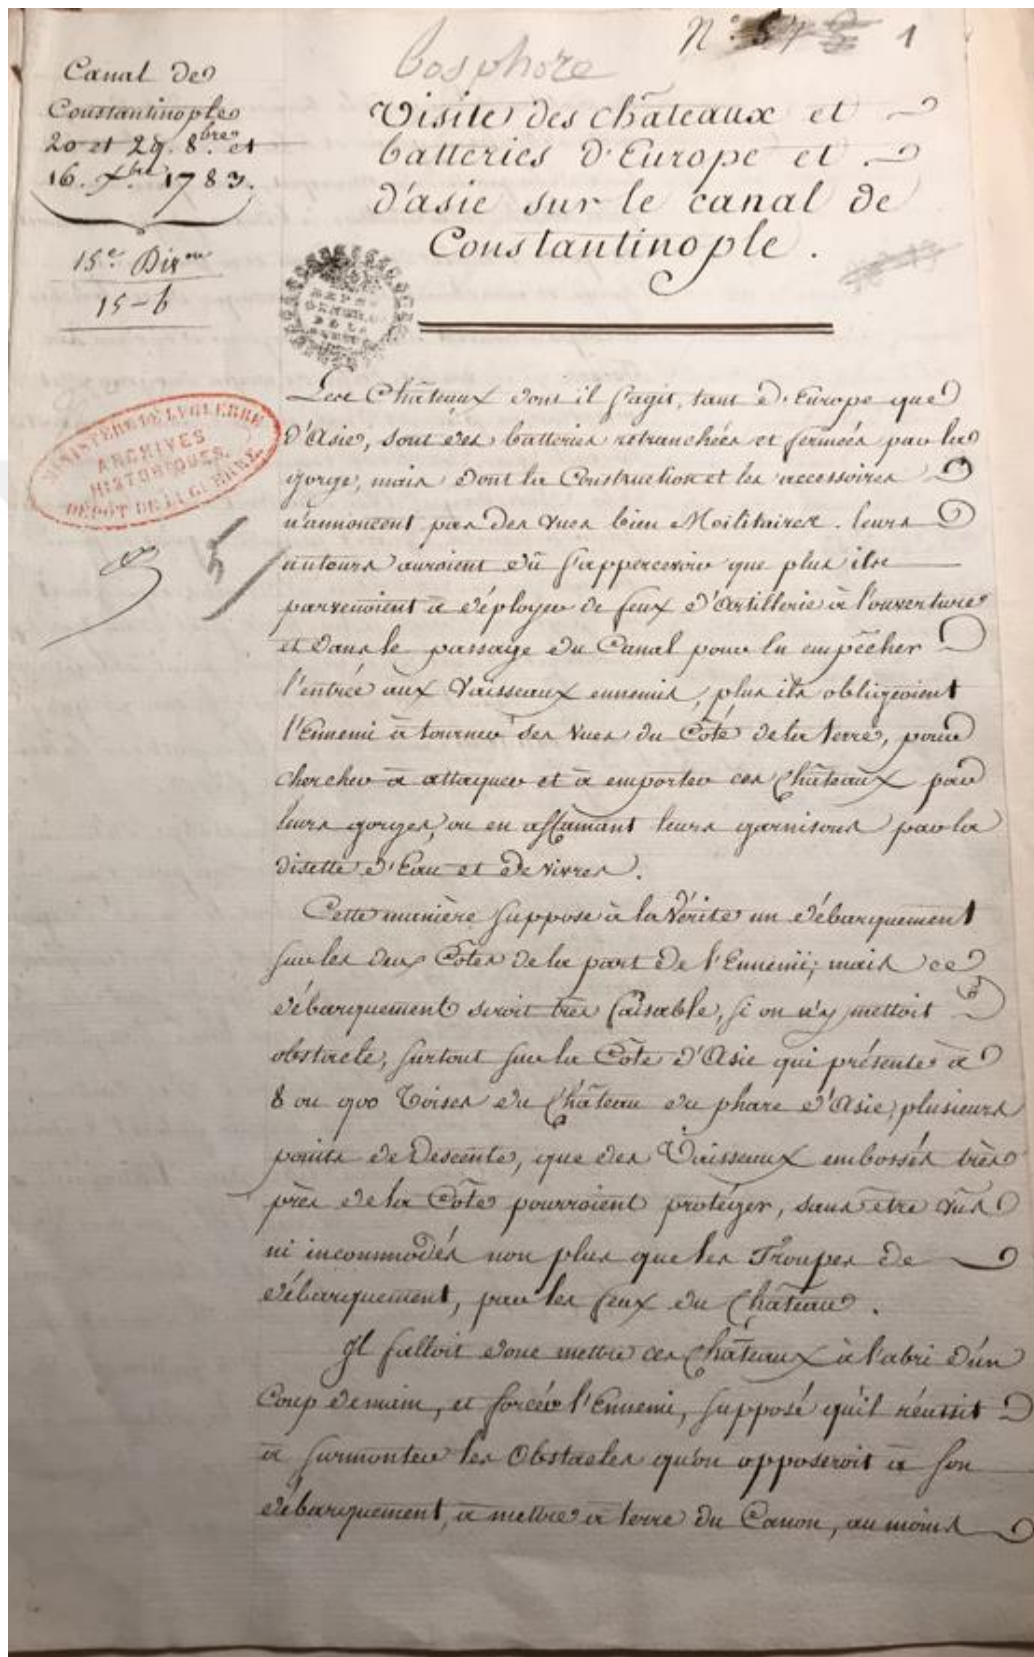 N.°
1
bosphore
Canal de
Constantinople
20 et 29. 8.bre et
16. Xbre 1783.
15.e Dison
15-6
Visite des châteaux et
batteries d'Europe et
d'asie sur le canal de
Constantinople.
DEPOT
GENERAL
DE LA
GUERRE
MINISTERE DE LA GUERRE
ARCHIVES
HISTORIQUES.
DÉPÔT DE LA GUERRE
Les Châteaux dont il s'agit, tant d'Europe que
d'Asie, sont des batteries retranchées et fermées par la
gorge, mais dont la Construction et les accessoires
n'annoncent pas des vues bien Militaires. leurs
auteurs auroient dû s'appercevoir que plus ils
parvenoient à déployer de feux d'Artillerie à l'ouverture
et dans le passage du Canal pour en empêcher
l'entrée aux Vaisseaux ennemis, plus ils obligeoient
l'Ennemi à tourner ses vues du Côté de la terre, pour
chercher à attaquer et à emporter ces Châteaux par
leurs gorges, ou en affamant leurs garnisons par la
disette d'Eau et de vivres.
Cette manière suppose à la Vérité un débarquement
sur les deux Côtes de la part de l'Ennemi; mais ce
débarquement seroit très faisable, si on n'y mettoit
obstacle, surtout sur la Côte d'Asie qui présente à
8 ou 900 Toises du Château du phare d'Asie, plusieurs
points de Descente, que des Vaisseaux embossés très
près de la Côte pourroient protéger, sans être vus
ni incommodés non plus que les Troupes de
débarquement, par les feux du Château.
Il falloit donc mettre ces Châteaux à l'abri d'un
Coup de main, et forcer l'Ennemi, supposé qu'il réussit
à surmonter les Obstacles qu'on opposeroit à son
débarquement, à mettre à terre du Canon, au moins